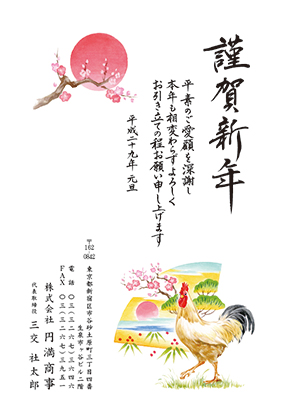 謹賀新年
平素のご愛顧を深謝し
本年も相変わらずよろしく
お引き立ての程お願い申し上げます
平成二十九年 元旦
〒162
0842
東京都新宿区市谷砂土原町三丁目四番
生泉市ヶ谷ビル二階
電話 〇三(三二六七)三六四六
FAX 〇三(三二六七)三九五一
株式会社 円満商事
代表取締役 三交 社太郎